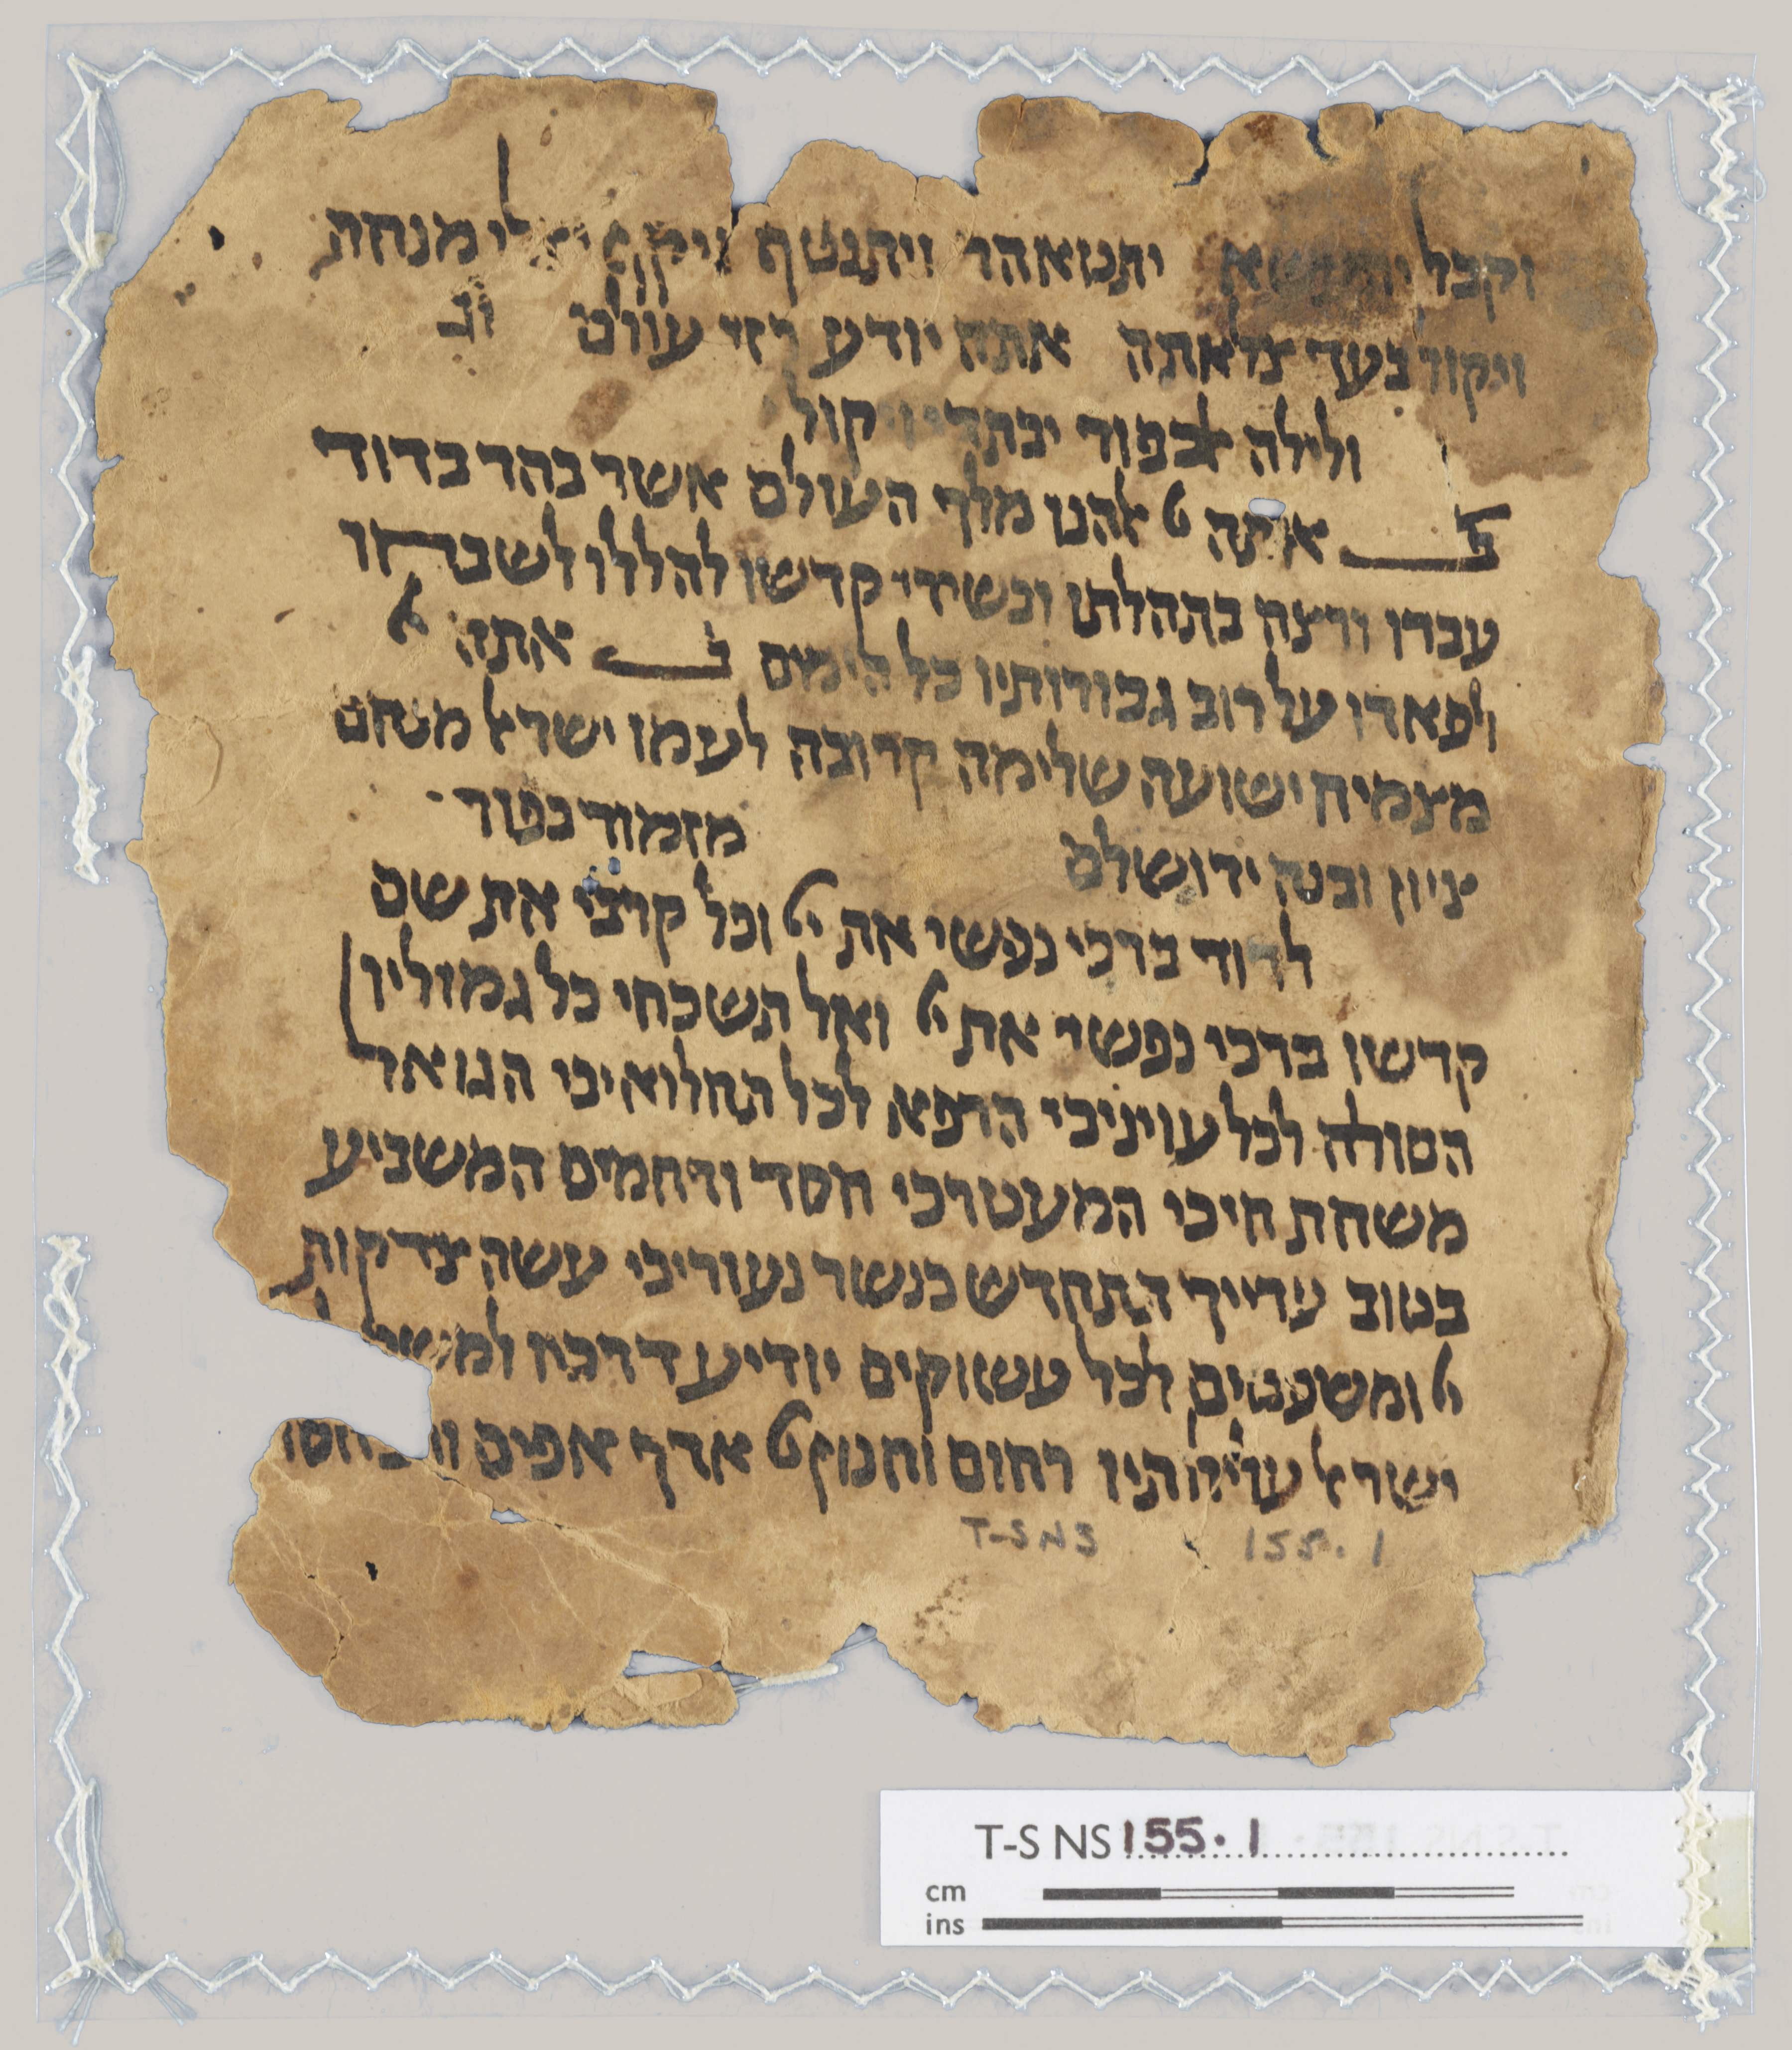 וקבל יתעשא יתטאהר ויתנטף ויקף יצלי מנחה
ויקול בעד צלאתה אתה יודע רזי עולם וג
ולילה לכפור יבתדי ויקול
ב אתה ט אלהנו מלך העולם אשר בהר בדוד
עבדו ורצה בתהלתו ובשירי קדשו להללו לשבחו
ולפארו על רוב גבורותיו כל הימים ב אתה
מצמיח ישועה שלימה קרובה לעמו ישראל מנחם
ציון ובנה ירושלם מזמור כפור
לדוד ברכי נפשי את יט וכל קרבי את שם
קדשו ברכי נפשי את יט ואל תשכחי כל גמוליו
הסולח לכל עויניכי הרפא לכל תחלואיכי הגואל
משחת חיכי המעטרכי חסד ורחמים המשביע
בטוב עדייך תתחדש כנשר נעוריכי עשה צדקות
יט ומשפטים לכל עשוקים יודיע דרכיו למשה
ישראל עלילותיו רחום וחנון יט ארך אפים ורב חסד
T-S NS 155.1
T-S NS 155.1
cm
ins